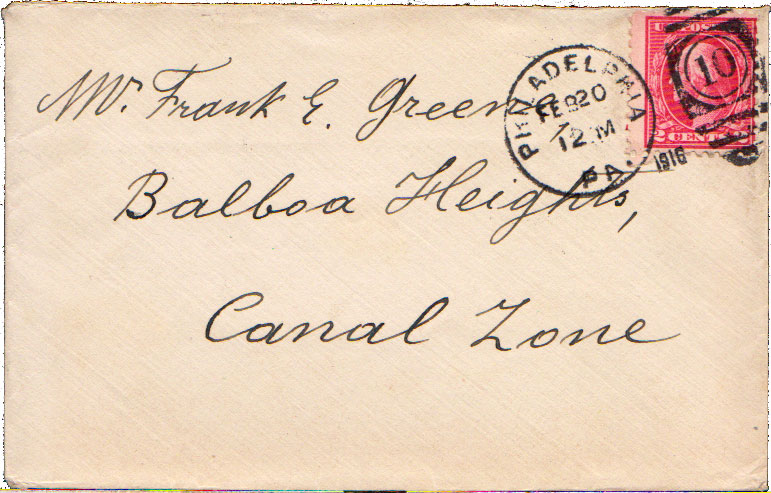 Mr. Frank E. Greene,
Balboa Heights,
Canal Zone
PHILADELPHIA
FEB 20
12 M
PA.
1916
10
U.S. POST
2 CENTS 2